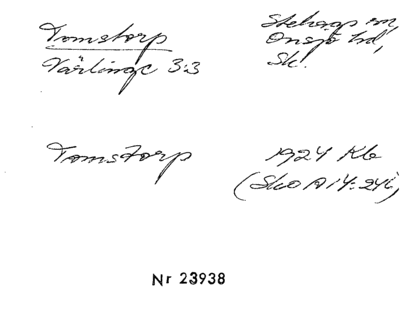 Tomstorp
Stehags sn,
Onsjö hd,
Värlinge 3:3
Sk.
Tomstorp
1924 Kb
(SkO A 14: 24,
Nr 23938